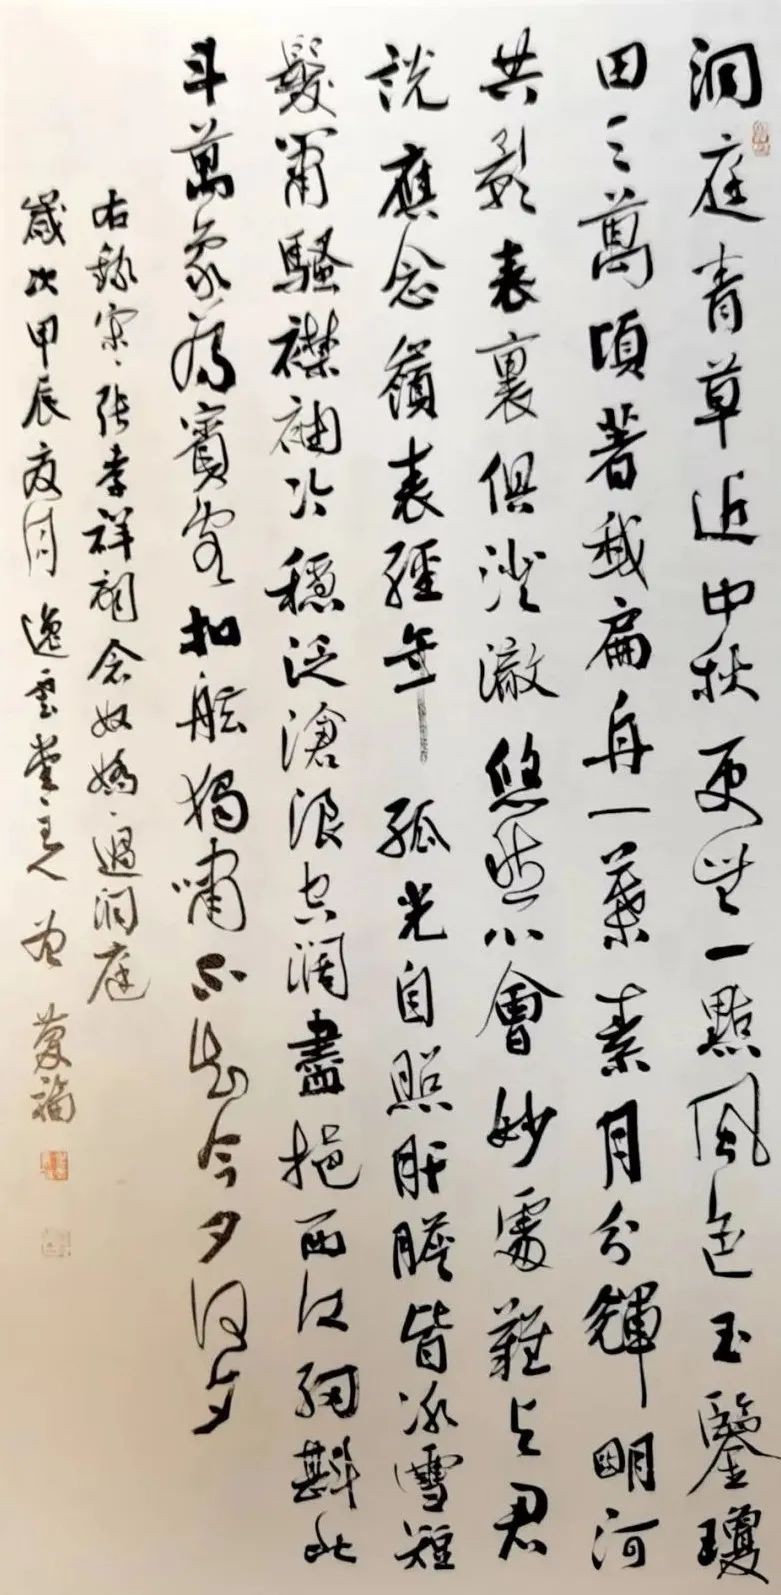 洞庭青草近中秋更無一點風色玉鑒瓊
田三萬頃著我扁舟一葉素月分輝明河
共影表裏俱澄澈悠然心會妙處難與君
說應念嶺表經年孤光自照肝膽皆冰雪短
髮蕭騷襟袖冷穩泛滄浪空闊盡挹西江細斟北
斗萬象為賓客扣舷獨嘯不知今夕何夕
右錄宋張孝祥詞念奴嬌過洞庭
歲次甲辰夏月逸雲堂主人